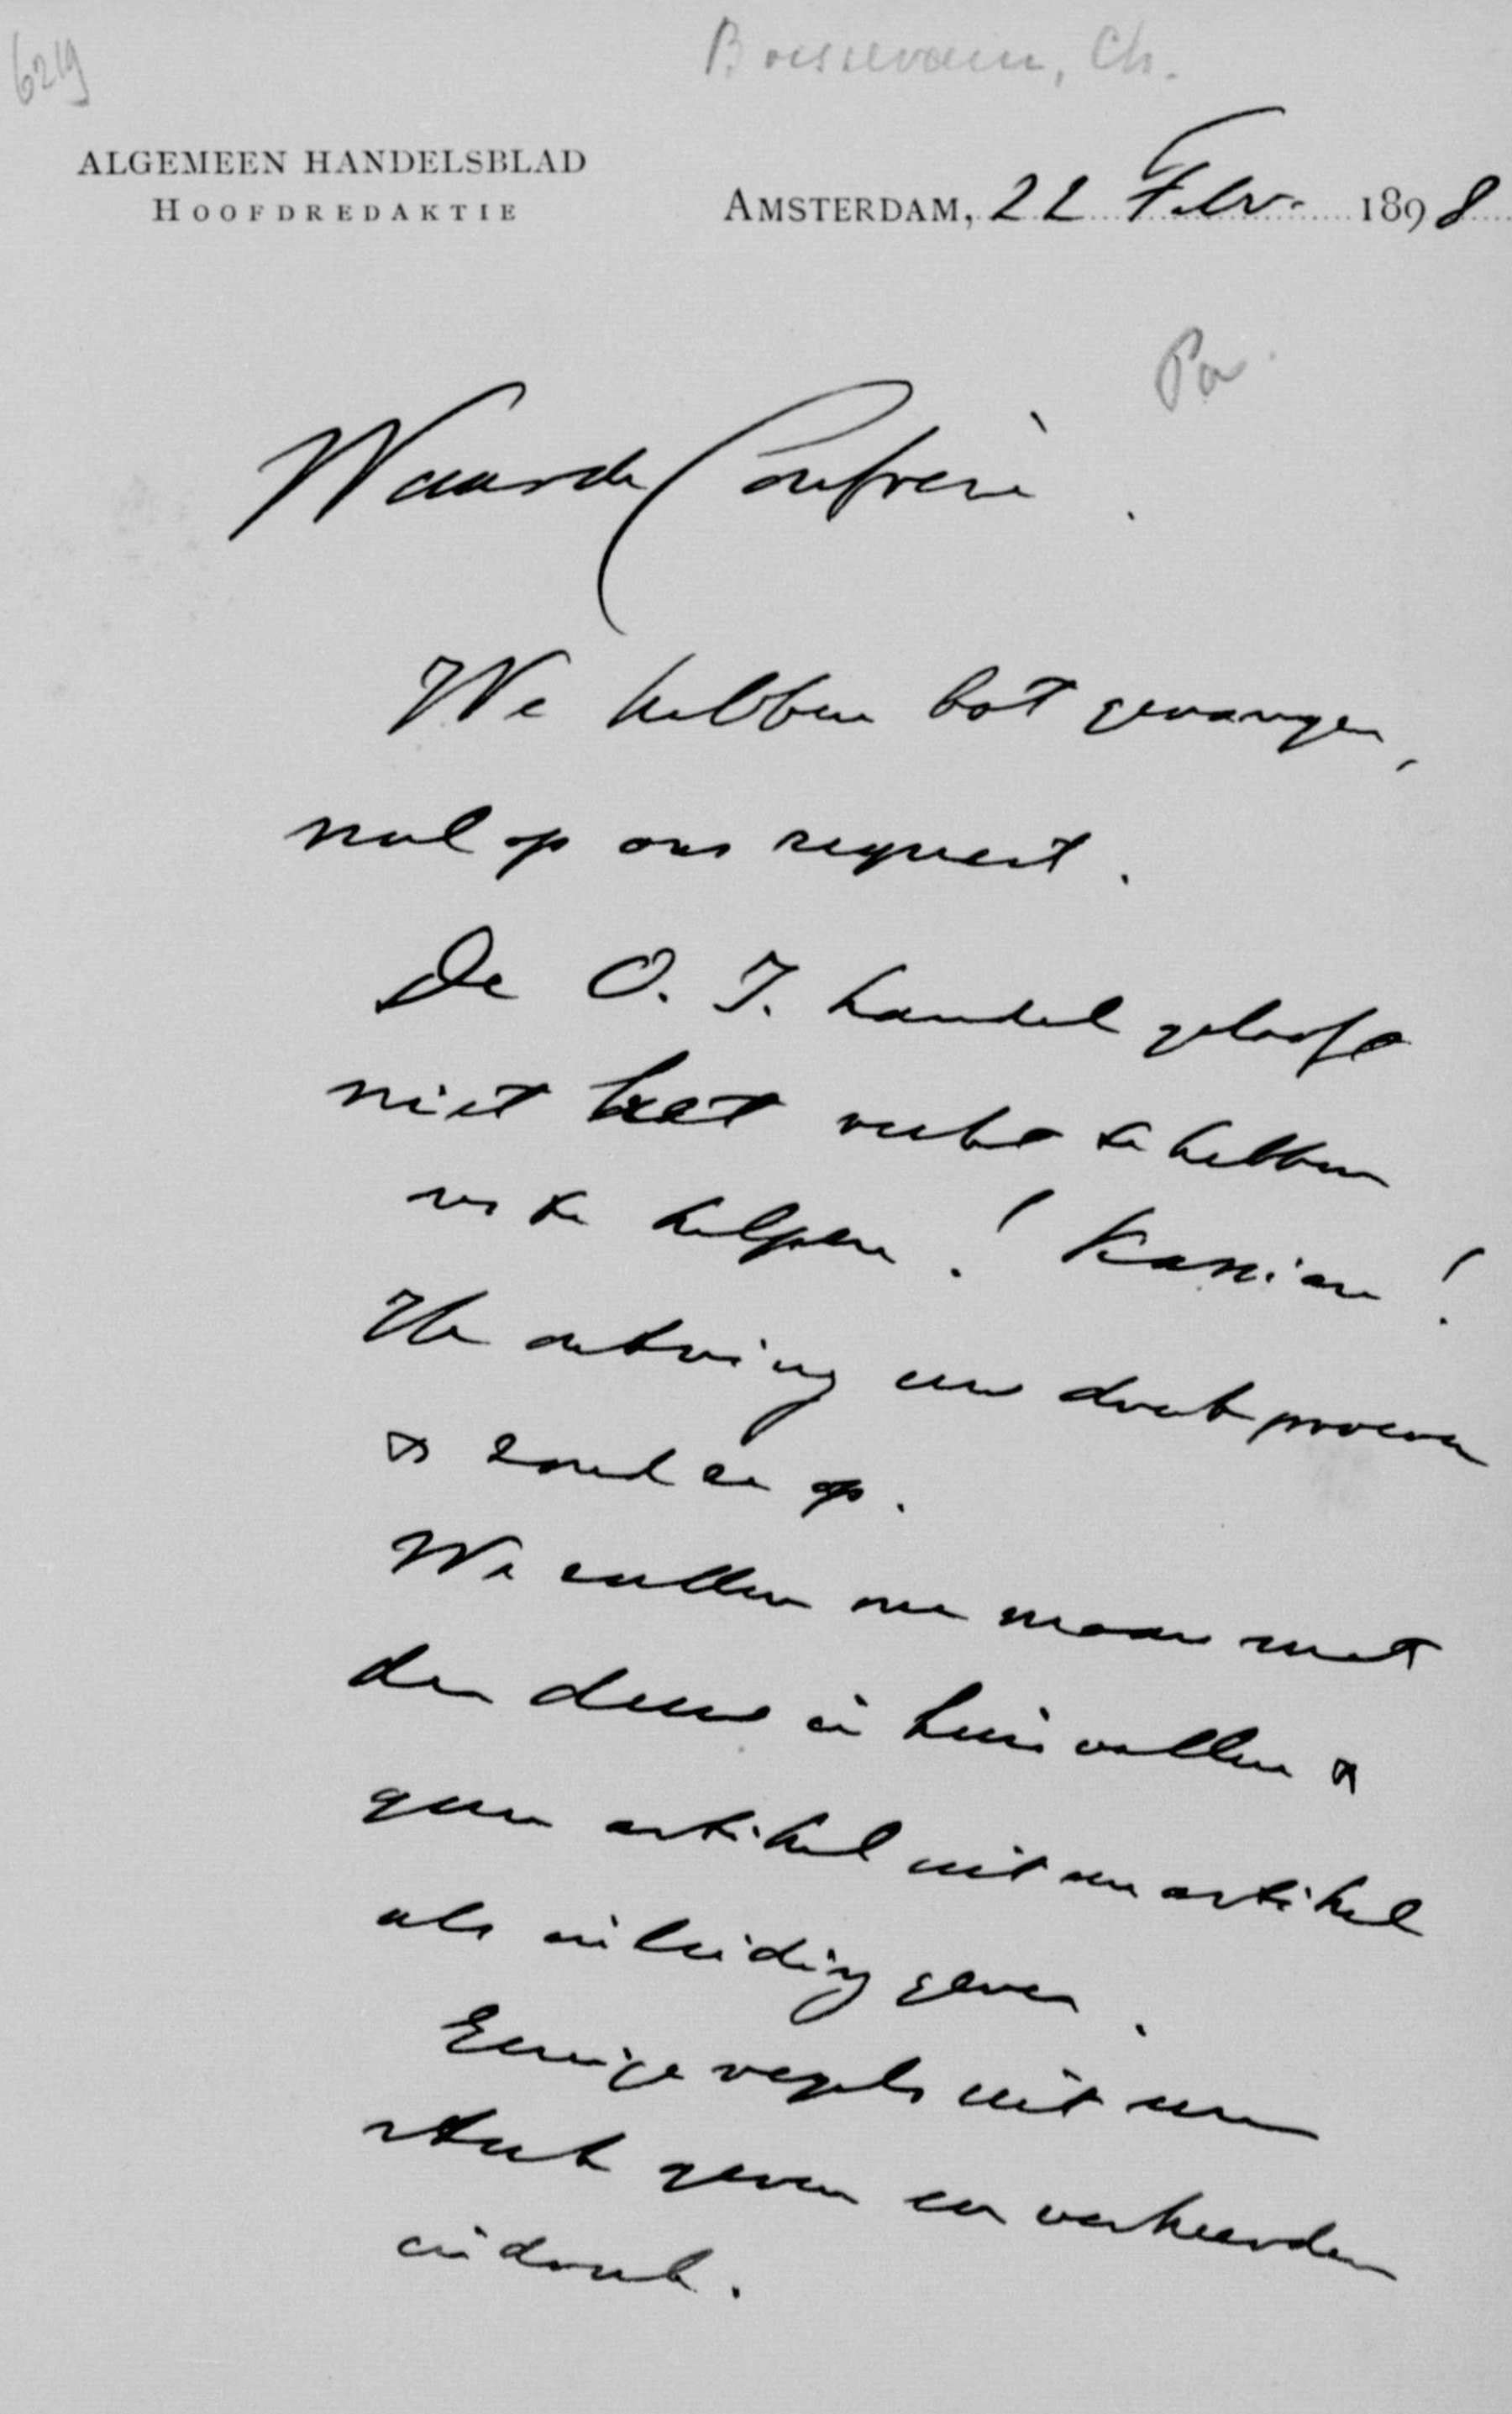 6219
Boissevain, Ch.
ALGEMEEN HANDELSBLAD
HOOFDREDAKTIE
AMSTERDAM, 22 Febr. 1898
Pa.
Waarde Confrère.
We hebben bot gevangen,
nul op ons request.
De O. I. handel gelooft
niet het recht te hebben
ons te helpen! Kassian!
Ik ontving een drukproeven
& zond ze op.
We zullen nu maar met
de deur in huis vallen &
geen artikel uit een artikel
als inleiding geven.
Eenige regels uit een
stuk geven een verkeerden
indruk.